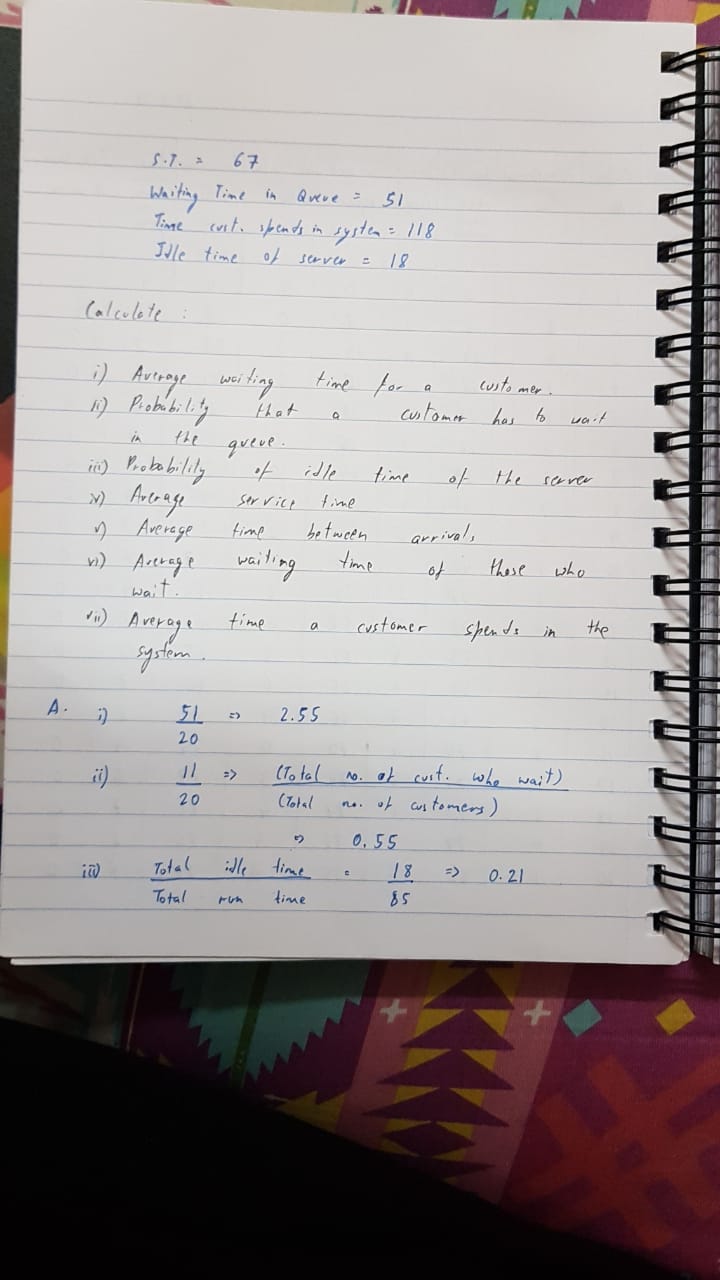 S.T. = 67
Waiting Time in Queue = 51
Time cust. spends in system = 118
Idle time of server = 18
Calculate :
i) Average waiting time for a customer.
ii) Probability that a customer has to wait
in the queue.
iii) Probability of idle time of the server
iv) Average service time
v) Average time between arrivals
vi) Average waiting time of those who
wait.
vii) Average time a customer spends in the
system.
A. i) 51 => 2.55
20
ii) 11 => (Total no. of cust. who wait)
20 (Total no. of customers)
=> 0.55
iii) Total idle time = 18 => 0.21
Total run time 85